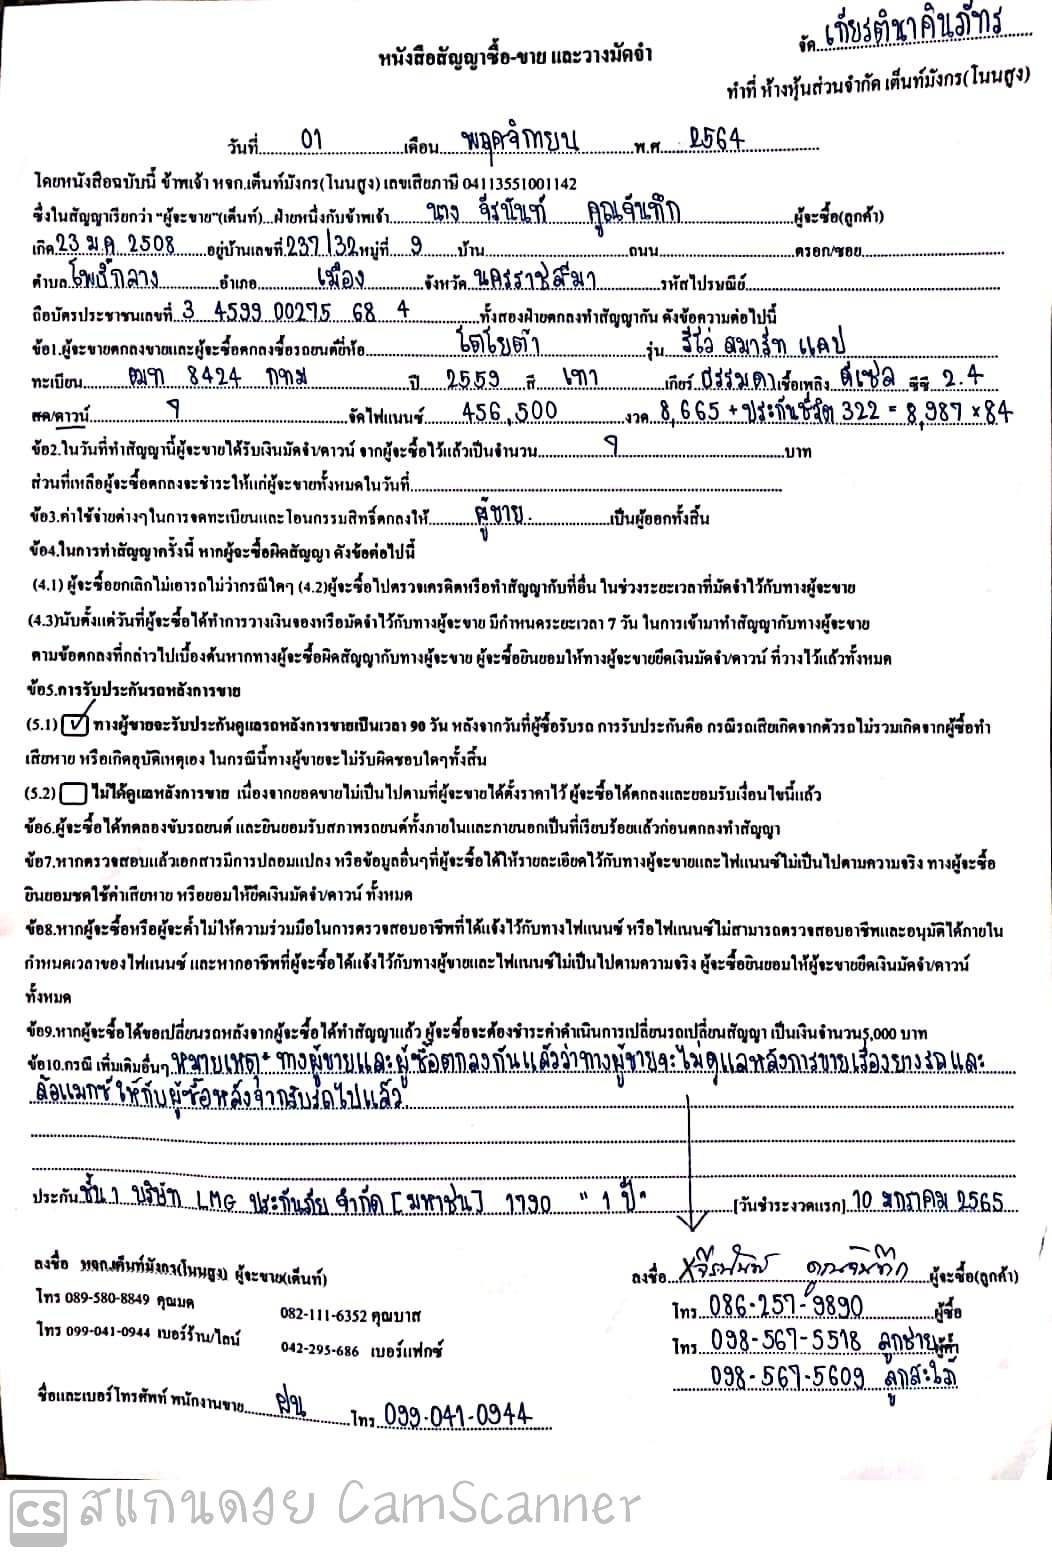 จัด เกียรตินาคินภัทร
หนังสือสัญญาซื้อ-ขาย และวางมัดจำ
ทำที่ ห้างหุ้นส่วนจำกัด เต็นท์มังกร(โนนสูง)
วันที่ 01 เดือน พฤศจิกายน พ.ศ. 2564
โดยหนังสือฉบับนี้ ข้าพเจ้า หจก.เต็นท์มังกร(โนนสูง) เลขเสียภาษี 04113551001142
ซึ่งในสัญญาเรียกว่า "ผู้จะขาย"(เต็นท์)...ฝ่ายหนึ่งกับข้าพเจ้า นาง จีรนันท์ คูณจันทึก ผู้จะซื้อ(ลูกค้า)
เกิด 23 ม.ค. 2508 อยู่บ้านเลขที่ 237/32 หมู่ที่ 9 บ้าน ถนน ตรอก/ซอย
ตำบล โพธิ์กลาง อำเภอ เมือง จังหวัด นครราชสีมา รหัสไปรษณีย์
ถือบัตรประชาชนเลขที่ 3 4599 00275 68 4 ทั้งสองฝ่ายตกลงทำสัญญากัน ดังข้อความต่อไปนี้
ข้อ1.ผู้จะขายตกลงขายและผู้จะซื้อตกลงซื้อรถยนต์ยี่ห้อ โตโยต้า รุ่น รีโว่ สมาร์ท แคป
ทะเบียน ฒฑ 8424 กทม ปี 2559 สี เทา เกียร์ ธรรมดา เชื้อเพลิง ดีเซล ซีซี 2.4
สด/ดาวน์ จัดไฟแนนซ์ 456,500 งวด 8,665 + ประกันชีวิต 322 = 8,987 x 84
ข้อ2.ในวันที่ทำสัญญานี้ผู้จะขายได้รับเงินมัดจำ/ดาวน์ จากผู้จะซื้อไว้แล้วเป็นจำนวน บาท
ส่วนที่เหลือผู้จะซื้อตกลงจะชำระให้แก่ผู้จะขายทั้งหมดในวันที่
ข้อ3.ค่าใช้จ่ายต่างๆในการจดทะเบียนและโอนกรรมสิทธิ์ตกลงให้ ผู้ขาย. เป็นผู้ออกทั้งสิ้น
ข้อ4.ในการทำสัญญาครั้งนี้ หากผู้จะซื้อผิดสัญญา ดังข้อต่อไปนี้
(4.1) ผู้จะซื้อยกเลิกไม่เอารถไม่ว่ากรณีใดๆ (4.2)ผู้จะซื้อไปตรวจเครดิตหรือทำสัญญากับที่อื่น ในช่วงระยะเวลาที่มัดจำไว้กับทางผู้จะขาย
(4.3)นับตั้งแต่วันที่ผู้จะซื้อได้ทำการวางเงินจองหรือมัดจำไว้กับทางผู้จะขาย มีกำหนดระยะเวลา 7 วัน ในการเข้ามาทำสัญญากับทางผู้จะขาย
ตามข้อตกลงที่กล่าวไปเบื้องต้นหากทางผู้จะซื้อผิดสัญญากับทางผู้จะขาย ผู้จะซื้อยินยอมให้ทางผู้จะขายยึดเงินมัดจำ/ดาวน์ ที่วางไว้แล้วทั้งหมด
ข้อ5.การรับประกันรถหลังการขาย
(5.1) ✓ ทางผู้ขายจะรับประกันดูแลรถหลังการขายเป็นเวลา 90 วัน หลังจากวันที่ผู้ซื้อรับรถ การรับประกันคือ กรณีรถเสียเกิดจากตัวรถไม่รวมเกิดจากผู้ซื้อทำ
เสียหาย หรือเกิดอุบัติเหตุเอง ในกรณีนี้ทางผู้ขายจะไม่รับผิดชอบใดๆทั้งสิ้น
(5.2) ไม่ได้ดูแลหลังการขาย เนื่องจากยอดขายไม่เป็นไปตามที่ผู้จะขายได้ตั้งราคาไว้ ผู้จะซื้อได้ตกลงและยอมรับเงื่อนไขนี้แล้ว
ข้อ6.ผู้จะซื้อได้ทดลองขับรถยนต์ และยินยอมรับสภาพรถยนต์ทั้งภายในและภายนอกเป็นที่เรียบร้อยแล้วก่อนตกลงทำสัญญา
ข้อ7.หากตรวจสอบแล้วเอกสารมีการปลอมแปลง หรือข้อมูลอื่นๆที่ผู้จะซื้อได้ให้รายละเอียดไว้กับทางผู้จะขายและไฟแนนซ์ไม่เป็นไปตามความจริง ทางผู้จะซื้อ
ยินยอมชดใช้ค่าเสียหาย หรือยอมให้ยึดเงินมัดจำ/ดาวน์ ทั้งหมด
ข้อ8.หากผู้จะซื้อหรือผู้จะค้ำไม่ให้ความร่วมมือในการตรวจสอบอาชีพที่ได้แจ้งไว้กับทางไฟแนนซ์ หรือไฟแนนซ์ไม่สามารถตรวจสอบอาชีพและอนุมัติได้ภายใน
กำหนดเวลาของไฟแนนซ์ และหากอาชีพที่ผู้จะซื้อได้แจ้งไว้กับทางผู้ขายและไฟแนนซ์ไม่เป็นไปตามความจริง ผู้จะซื้อยินยอมให้ผู้จะขายยึดเงินมัดจำ/ดาวน์
ทั้งหมด
ข้อ9.หากผู้จะซื้อได้ขอเปลี่ยนรถหลังจากผู้จะซื้อได้ทำสัญญาแล้ว ผู้จะซื้อจะต้องชำระค่าดำเนินการเปลี่ยนรถเปลี่ยนสัญญา เป็นเงินจำนวน5,000 บาท
ข้อ10.กรณี เพิ่มเติมอื่นๆ หมายเหตุ* ทางผู้ขายและผู้ซื้อตกลงกันแล้วว่าทางผู้ขายจะไม่ดูแลหลังการขายเรื่องยางรถและ
ล้อแมกซ์ให้กับผู้ซื้อหลังจากรับรถไปแล้ว
ประกัน ชั้น 1 บริษัท LMG ประกันภัย จำกัด [มหาชน] 1790 " 1 ปี " [วันชำระงวดแรก] 10 มกราคม 2565
ลงชื่อ หจก.เต็นท์มังกร(โนนสูง) ผู้จะขาย(เต็นท์)
ลงชื่อ x จีรนันท์ คูณจันทึก ผู้จะซื้อ(ลูกค้า)
โทร 089-580-8849 คุณมด 082-111-6352 คุณบาส
โทร 086-257-9890 ผู้ซื้อ
โทร 099-041-0944 เบอร์ร้าน/ไลน์ 042-295-686 เบอร์แฟกซ์
โทร 098-567-5518 ลูกชาย ผู้ค้ำ
098-567-5609 ลูกสะใภ้
ชื่อและเบอร์โทรศัพท์ พนักงานขาย ฝน โทร 099-041-0944
CS สแกนด้วย CamScanner